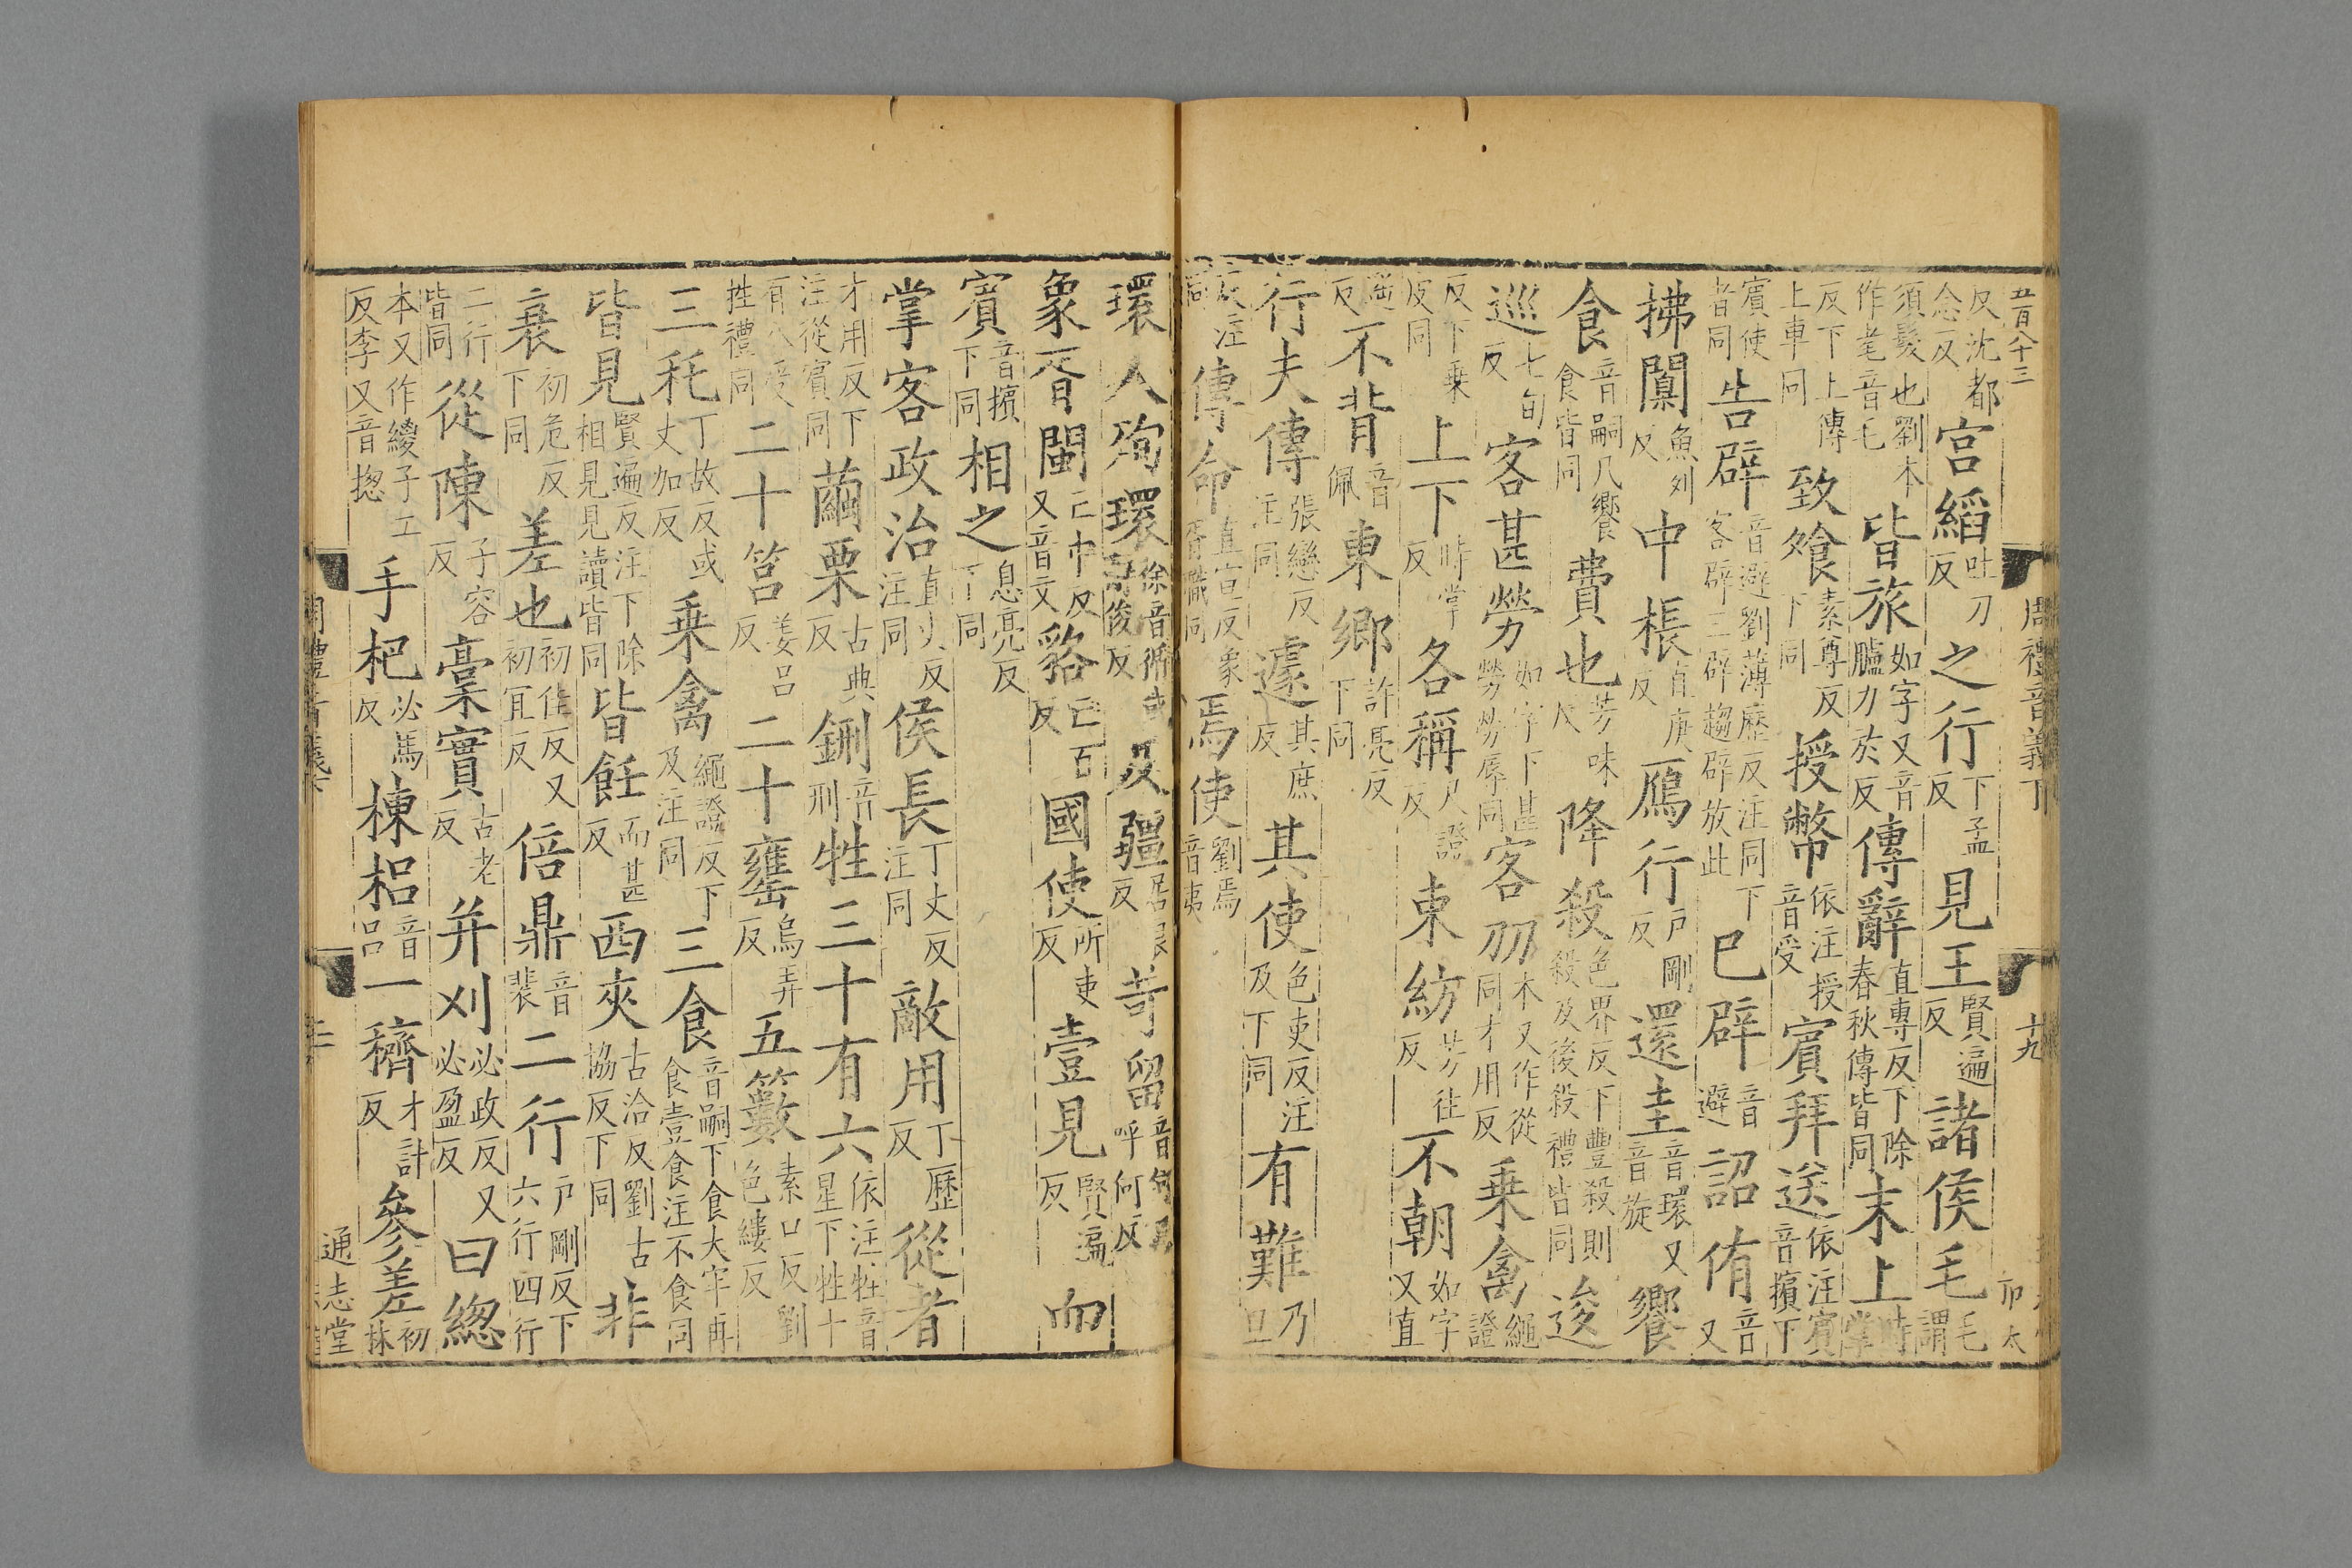 五百八十三 周禮音義下 十九
反沈都念反宮縚吐刀反之行下孟反見王賢遍反諸侯毛毛謂
須髮也劉本作耄音毛皆旅如字又音臚力於反傳辭直專反下除春秋傳皆同末上時掌
反下上傳上車同致飧素尊反下同授幣依注授音受賓拜送依注賓音擯下
賓使者同告辟音避劉薄歷反注同下客辟三辟趨辟放此巳辟音避詔侑音又
拂闑魚列反中棖直庚反鴈行戶剛反還圭音環又音旋饗
食音嗣凡饗食皆同費也芳味反降殺色界反下豐殺則殺及後殺禮皆同逡
巡七旬反客甚勞如字下甚勞勞辱同客刅本又作從同才用反乗禽繩證
反下乗皮同上下時掌反各稱尺證反束紡芳往反不朝如字又直
遥反不背音佩東鄉許亮反下同
行夫傳張戀反注同遽其庶反其使色吏反注及下同有難乃旦
反注同傳命直宣反象胥職同焉使劉焉音夷
環人殉環徐音循或辭俊反及疆居良反苛留音何又呼何反
象胥閩亡巾反又音文貉亡百反國使所吏反壹見賢遍反而
賓音擯下同相之息亮反下同
掌客政治直吏反注同侯長丁丈反注同敵用丁歷反從者
才用反下注從賓同繭栗古典反鉶音刑牲三十有六依注牲音星下牲十
有八受牲禮同二十筥姜呂反二十罋烏弄反五籔素口反劉色縷反
三秅丁故反或丈加反乗禽繩證反下及注同三食音嗣下食大牢再食壹食注不食同
皆見賢遍反注下除相見見讀皆同皆飪而甚反西夾古洽反劉古協反下同非
衰初危反下同差也初佳反又初冝反倍鼎音裴二行戶剛反下六行四行
二行皆同從陳子容反稾實古老反并刈必政反又必盈反曰緫
本又作緵子工反李又音揔手把必馬反棟梠音呂一穧才計反參差初林
通志堂